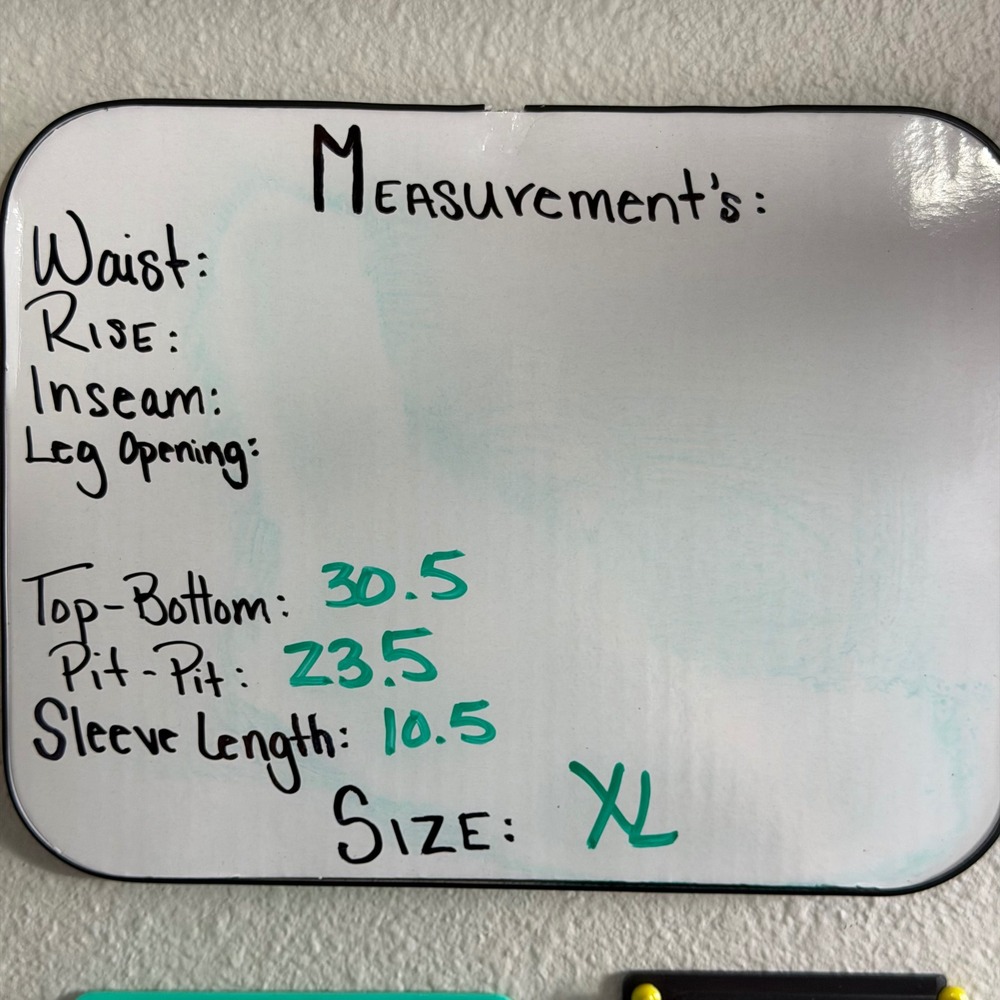 MEASUrement's:
Waist:
RISE:
Inseam:
Leg Opening:
Top-Bottom: 30.5
Pit-Pit: 23.5
Sleeve Length: 10.5
SIZE: XL